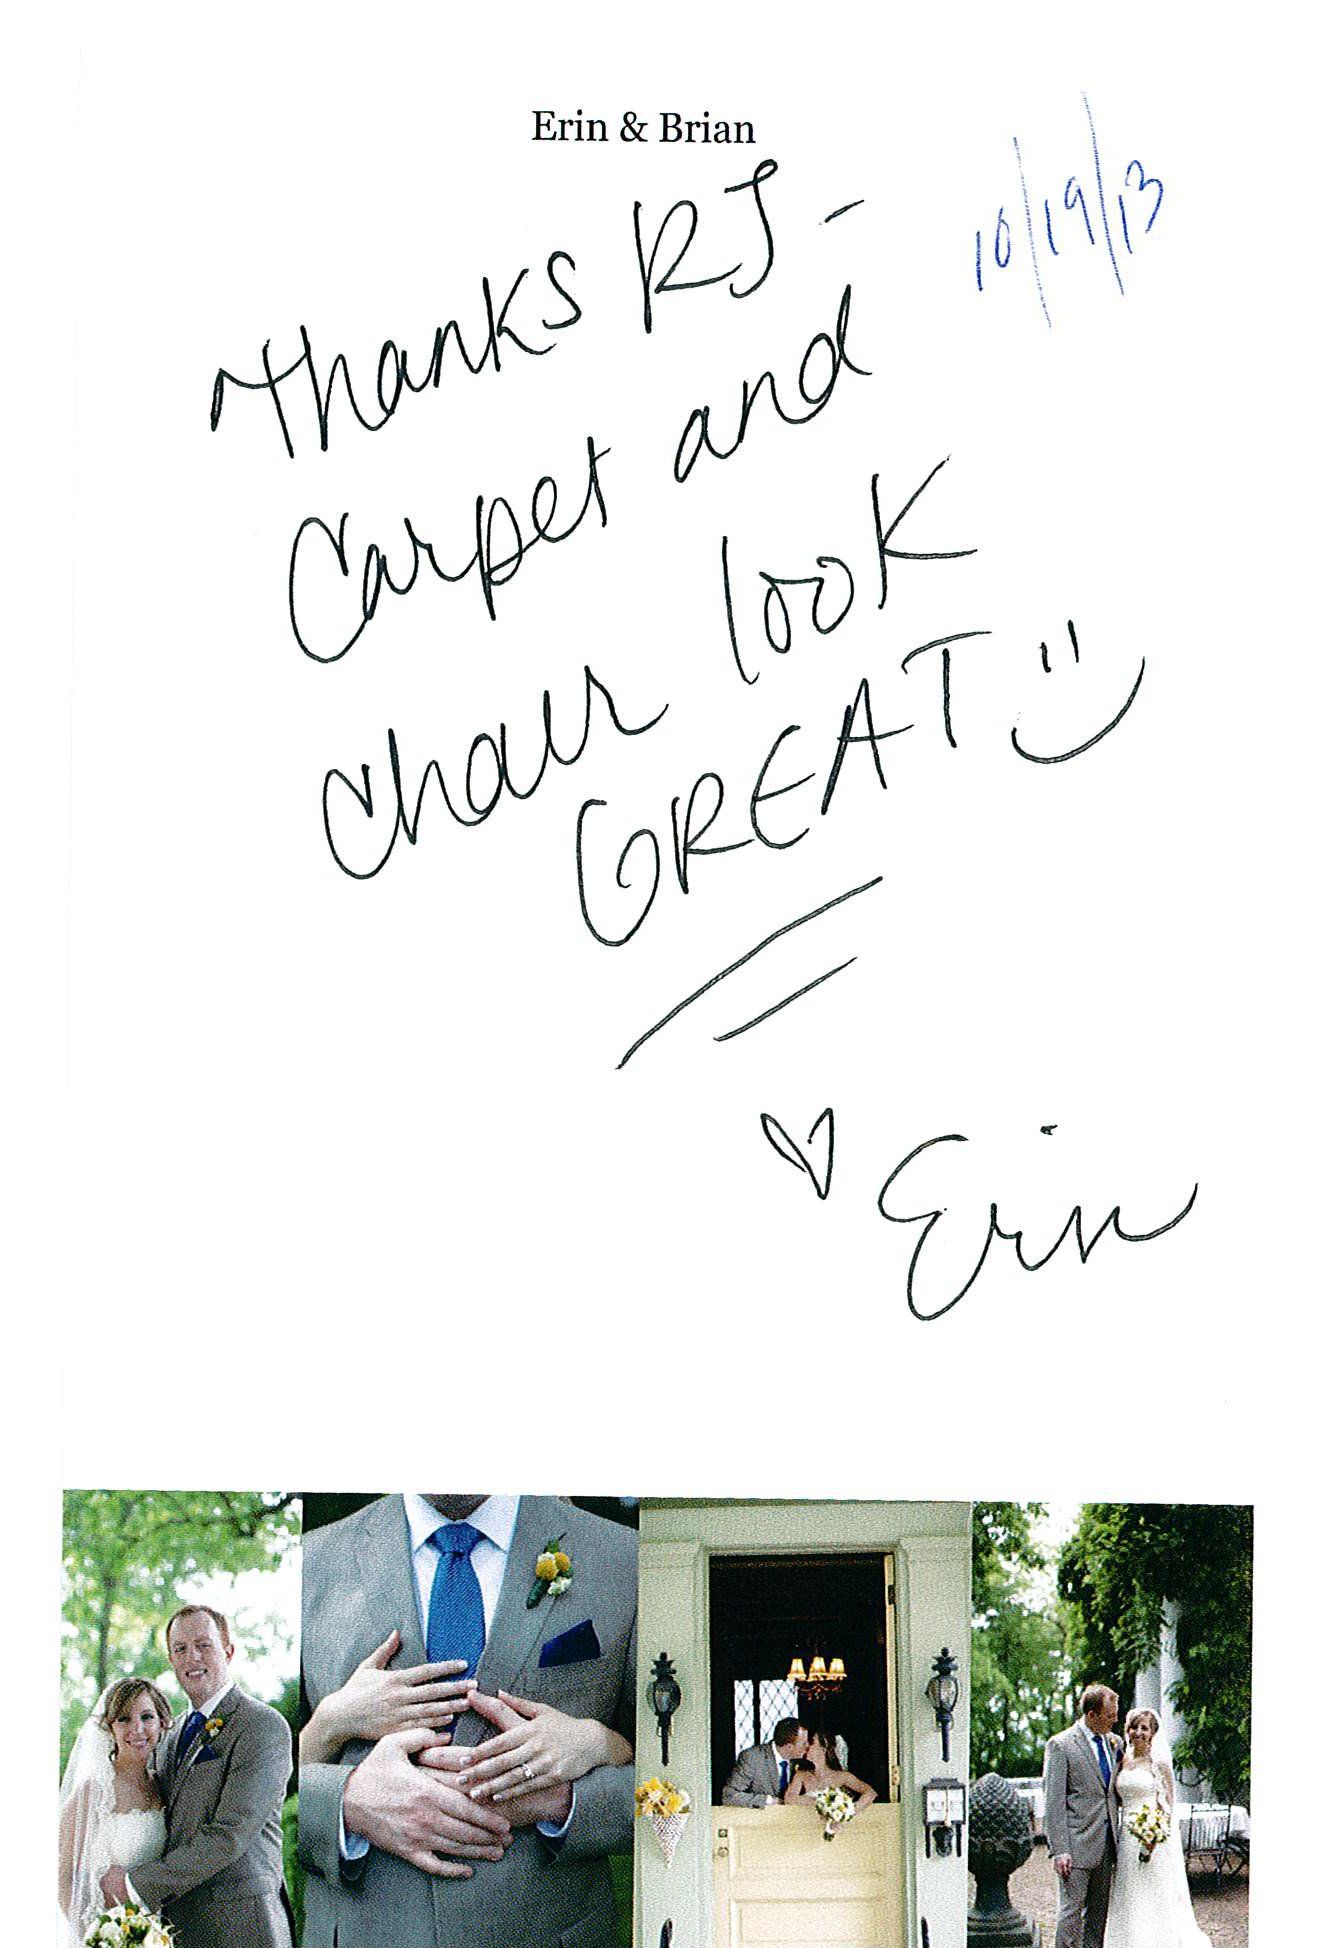 Erin & Brian
10/19/13
Thanks RJ-
Carpet and
chair look
GREAT
Erin